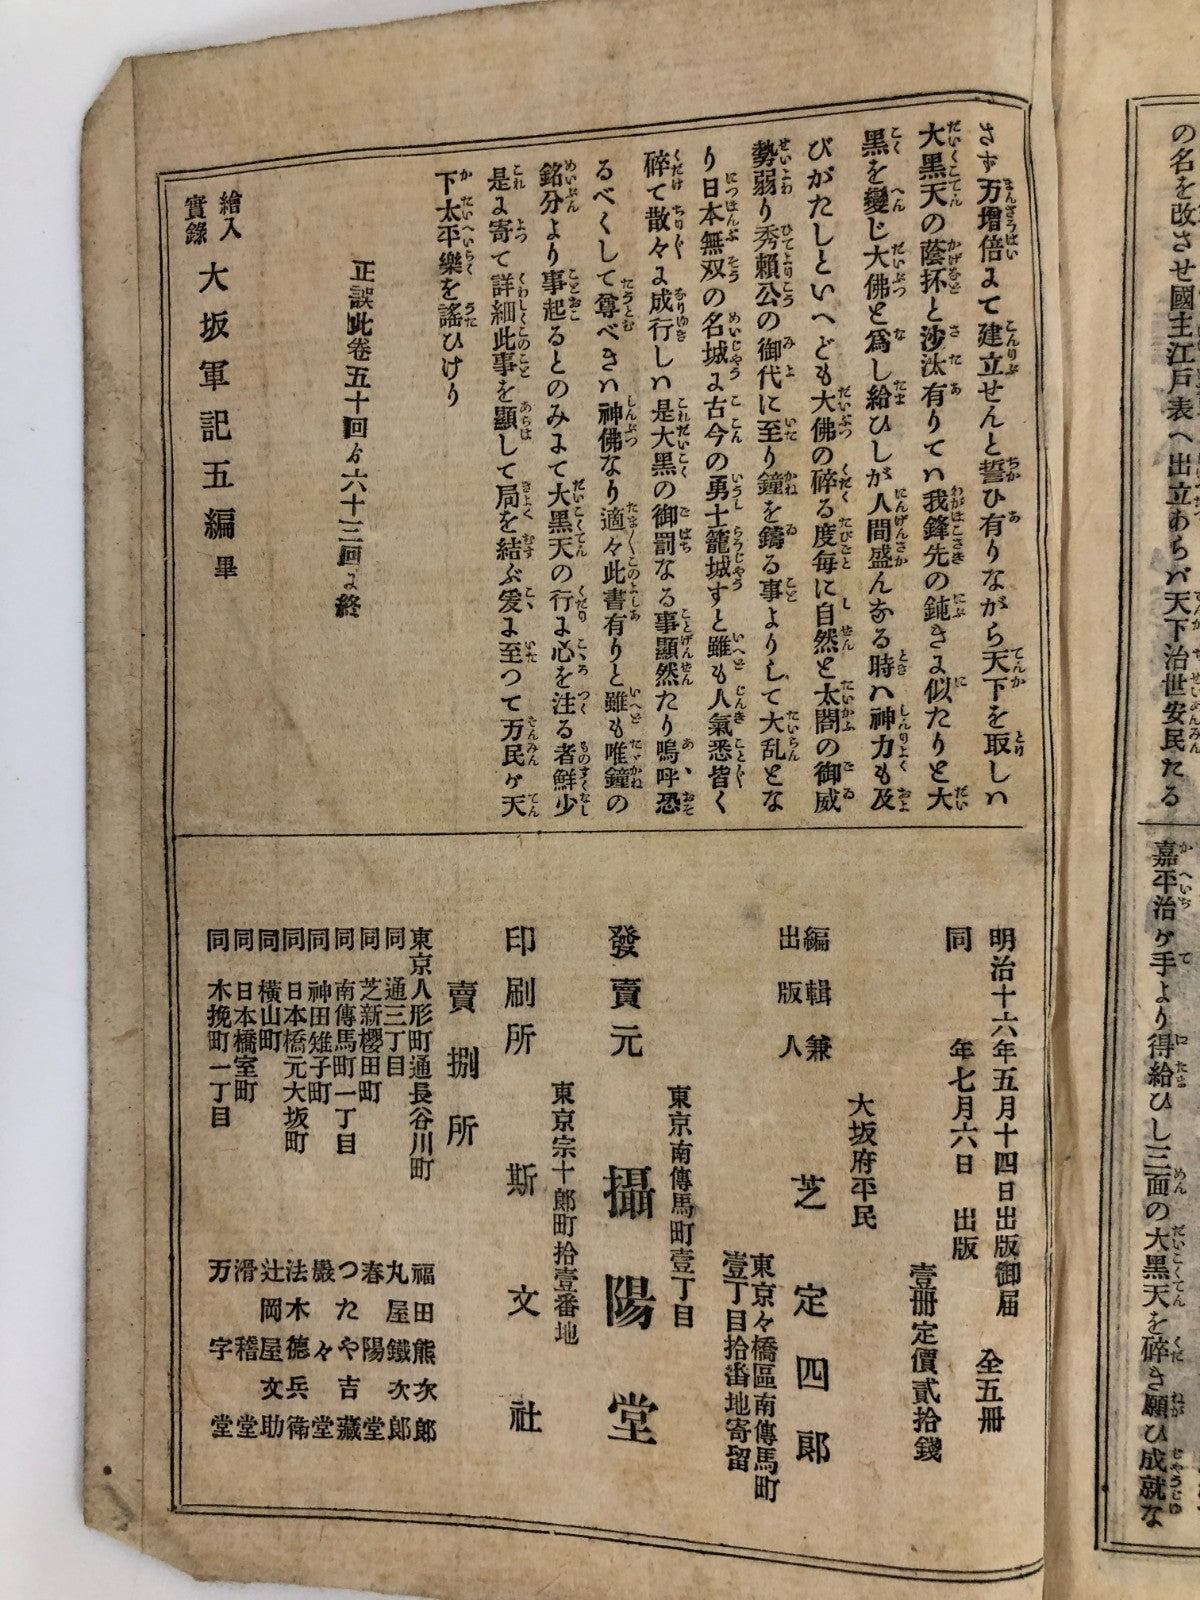 の名を改させ國主江戸表へ出立あらバ天下治世安民たる
嘉平治ヶ手より得給ひし三面の大黒天を碎き願ひ成就な
さず万增倍にて建立せんと誓ひ有りながら天下を取しハ
大黑天の蔭抔と沙汰有りてハ我鋒先の鈍きに似たりと大
黑を變じ大佛と爲し給ひしが人間盛んなる時ハ神力も及
びがたしといへども大佛の碎る度每に自然と太閤の御威
勢弱り秀賴公の御代に至り鐘を鑄る事よりして大乱とな
り日本無双の名城に古今の勇士籠城すと雖も人氣悉皆く
碎て散々に成行しハ是大黑の御罰なる事顯然たり嗚呼恐
るべくして尊べきハ神佛なり適々此書有りと雖も唯鐘の
銘分より事起るとのみにて大黑天の行に心を注る者鮮少
是に寄て詳細此事を顯して局を結ぶ爰に至つて万民ヶ天
下太平樂を謠ひけり
正誤此卷五十回ゟ六十三回に終
繪入實錄 大坂軍記五編 畢
明治十六年五月十四日出版御届 全五冊
同 年七月六日 出版
壹冊定價貳拾錢
大坂府平民
編輯兼出版人 芝定四郎
東京々橋區南傳馬町
壹丁目拾番地寄留
東京南傳馬町壹丁目
發賣元 攝陽堂
東京宗十郎町拾壹番地
印刷所 斯文社
賣捌所
東京人形町通長谷川町 福田熊次郎
同 通三丁目 丸屋鐵次郎
同 芝新櫻田町 春陽堂
同 南傳馬町一丁目 つたや吉藏
同 神田雉子町 巖々堂
同 日本橋元大坂町 法木德兵衛
同 橫山町 辻岡屋文助
同 日本橋室町 滑稽堂
同 木挽町一丁目 万字堂